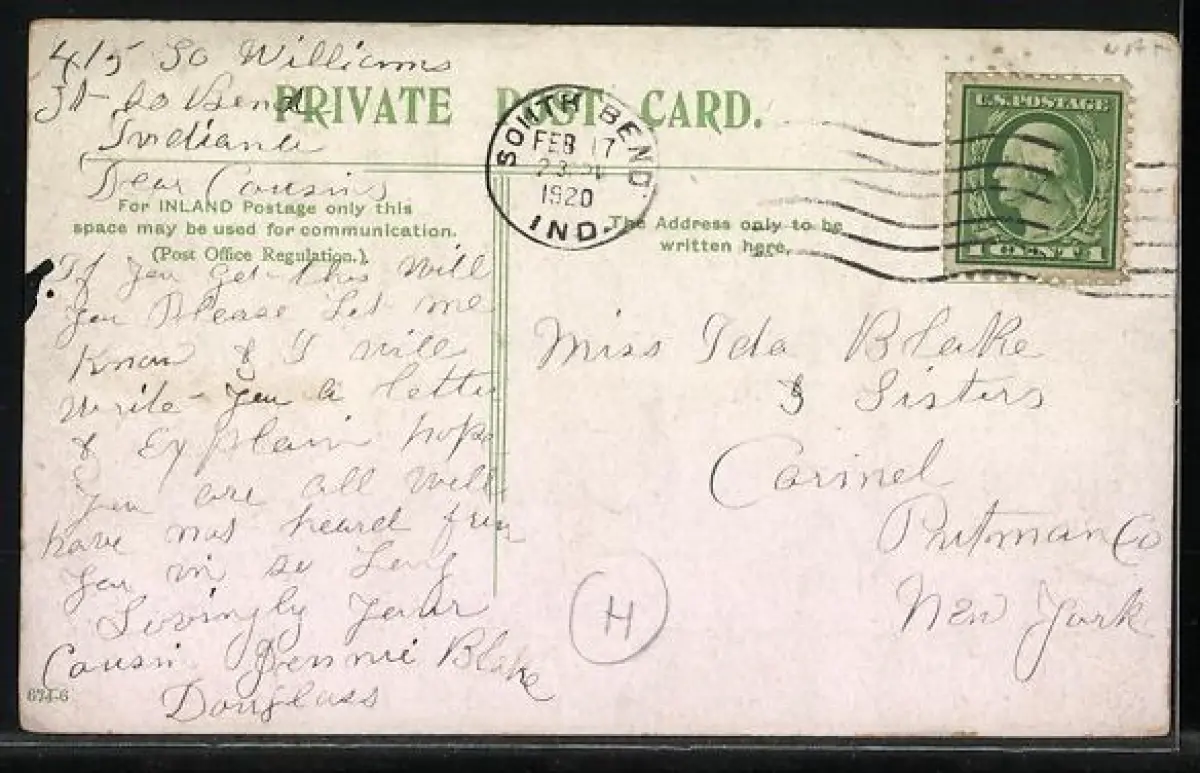 415 So Williams
St So Bend
Indiana
PRIVATE POST CARD.
SOUTH BEND
FEB 17
1920
IND.
U.S. POSTAGE
1 CENT 1
Dear Cousins
For INLAND Postage only this
space may be used for communication.
(Post Office Regulation.)
The Address only to be
written here.
If you get this will
you Please Let me
Know & I will
write you a letter
& Explain hope
you are all well
have not heard from
you in so Long
Lovingly your
Cousin Jennie Blake
Douglass
674-6
Miss Ida Blake
& Sisters
Carmel
Putman Co
New York
H